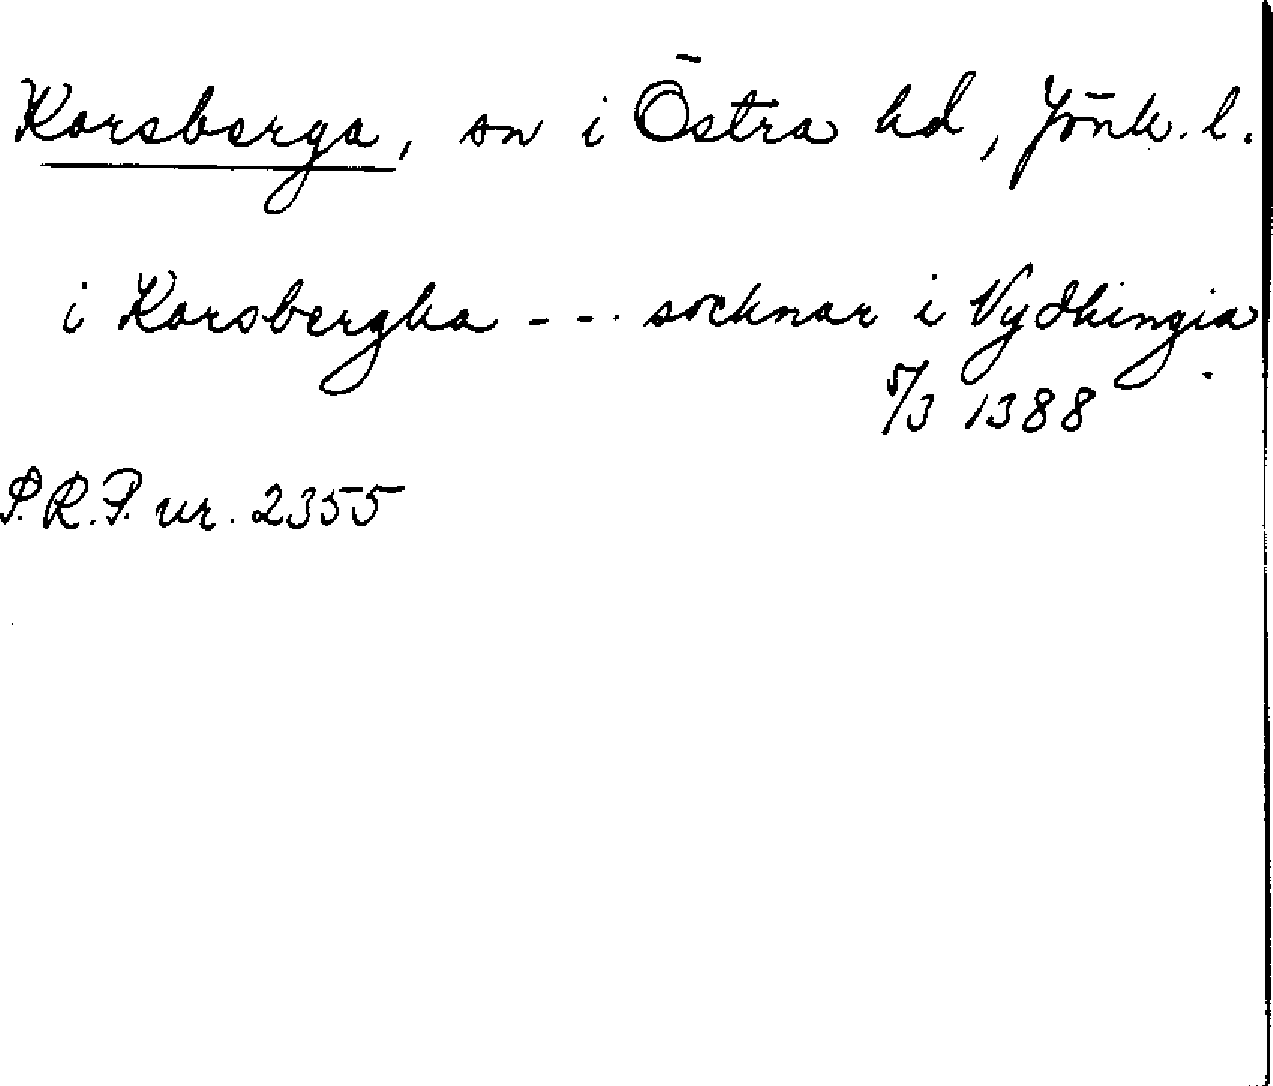 Korsberga, sn i Östra hd, Jönk. l.
i Korsbergha - - - socknar i Vydhingia
5/3 1388
P.R.P. nr. 2355